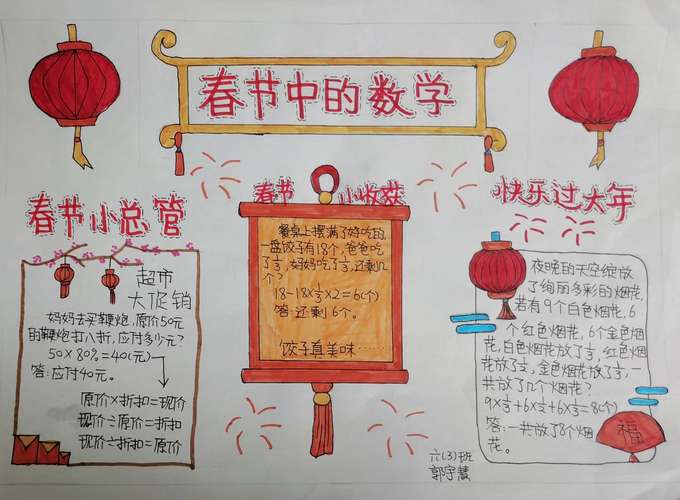 春节中的数学
春节小总管
超市
大促销
妈妈去买鞭炮,原价50元
的鞭炮打八折,应付多少元?
50×80%=40(元)
答:应付40元。
原价×折扣=现价
现价÷原价=折扣
现价÷折扣=原价
春节 小收获
餐桌上摆满了好吃的,
一盘饺子有18个,爸爸吃
了1/3,妈妈吃了1/3,还剩几
个?
18-18×1/3×2=6(个)
答:还剩6个。
饺子真美味……
快乐过大年
夜晚的天空绽放
了绚丽多彩的烟花,
若有9个白色烟花,6
个红色烟花,6个金色烟
花,白色烟花放了1/3,红色烟
花放了1/2,金色烟花放了1/3,一
共放了几个烟花?
9×1/3+6×1/2+6×1/3=8(个)
答:一共放了8个烟
花。
福
六(3)班
郭宇慧